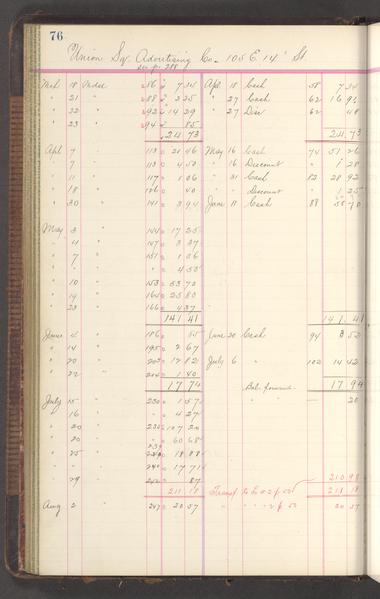 76
Union Sq. Advertising Co. 105 E. 14" St
Mch 18 Mdse 7 34 Apl 18 Cash 58 7 34
" 21 " 2 25 " 27 Cash 62 16 91
" 22 " 92 14 29 " 27 Disc 62 48
" 23 " 94 85
24 73 24 73
Apl 7 " 113 21 46 May 16 Cash 74 51 26
" 7 " 113 4 50 " 16 Discount " 1 28
" 11 " 117 1 06 " 31 Cash 82 28 92
" 18 " 126 40 " " Discount " 1 25
" 30 " 141 3 94 June 11 Cash 88 58 70
May 3 " 144 17 25
" 4 " 147 3 37
" 7 " 151 1 06
" " " " 4 50
" 10 " 153 53 70
" 14 " 164 25 80
" 23 " 166 4 37
141 41 141 41
June 2 " 186 55 June 20 Cash 94 3 52
" 14 " 195 2 67 July 6 " 102 14 42
" 20 " 12 82
" 22 " 1 40
17 74 Bal. forward 17 94
July 15 " 230 1 57 " " — 20
" 16 " " 4 27
" 20 " 235 107 20
" 20 " 60 68
" 25 " 239 18 88
" " " 240 17 71
" 29 " 87 210 98
211 18 Transf to L 2 p 50 211 18
Aug 2 " 247 20 57 " " " 2 p 50 20 57